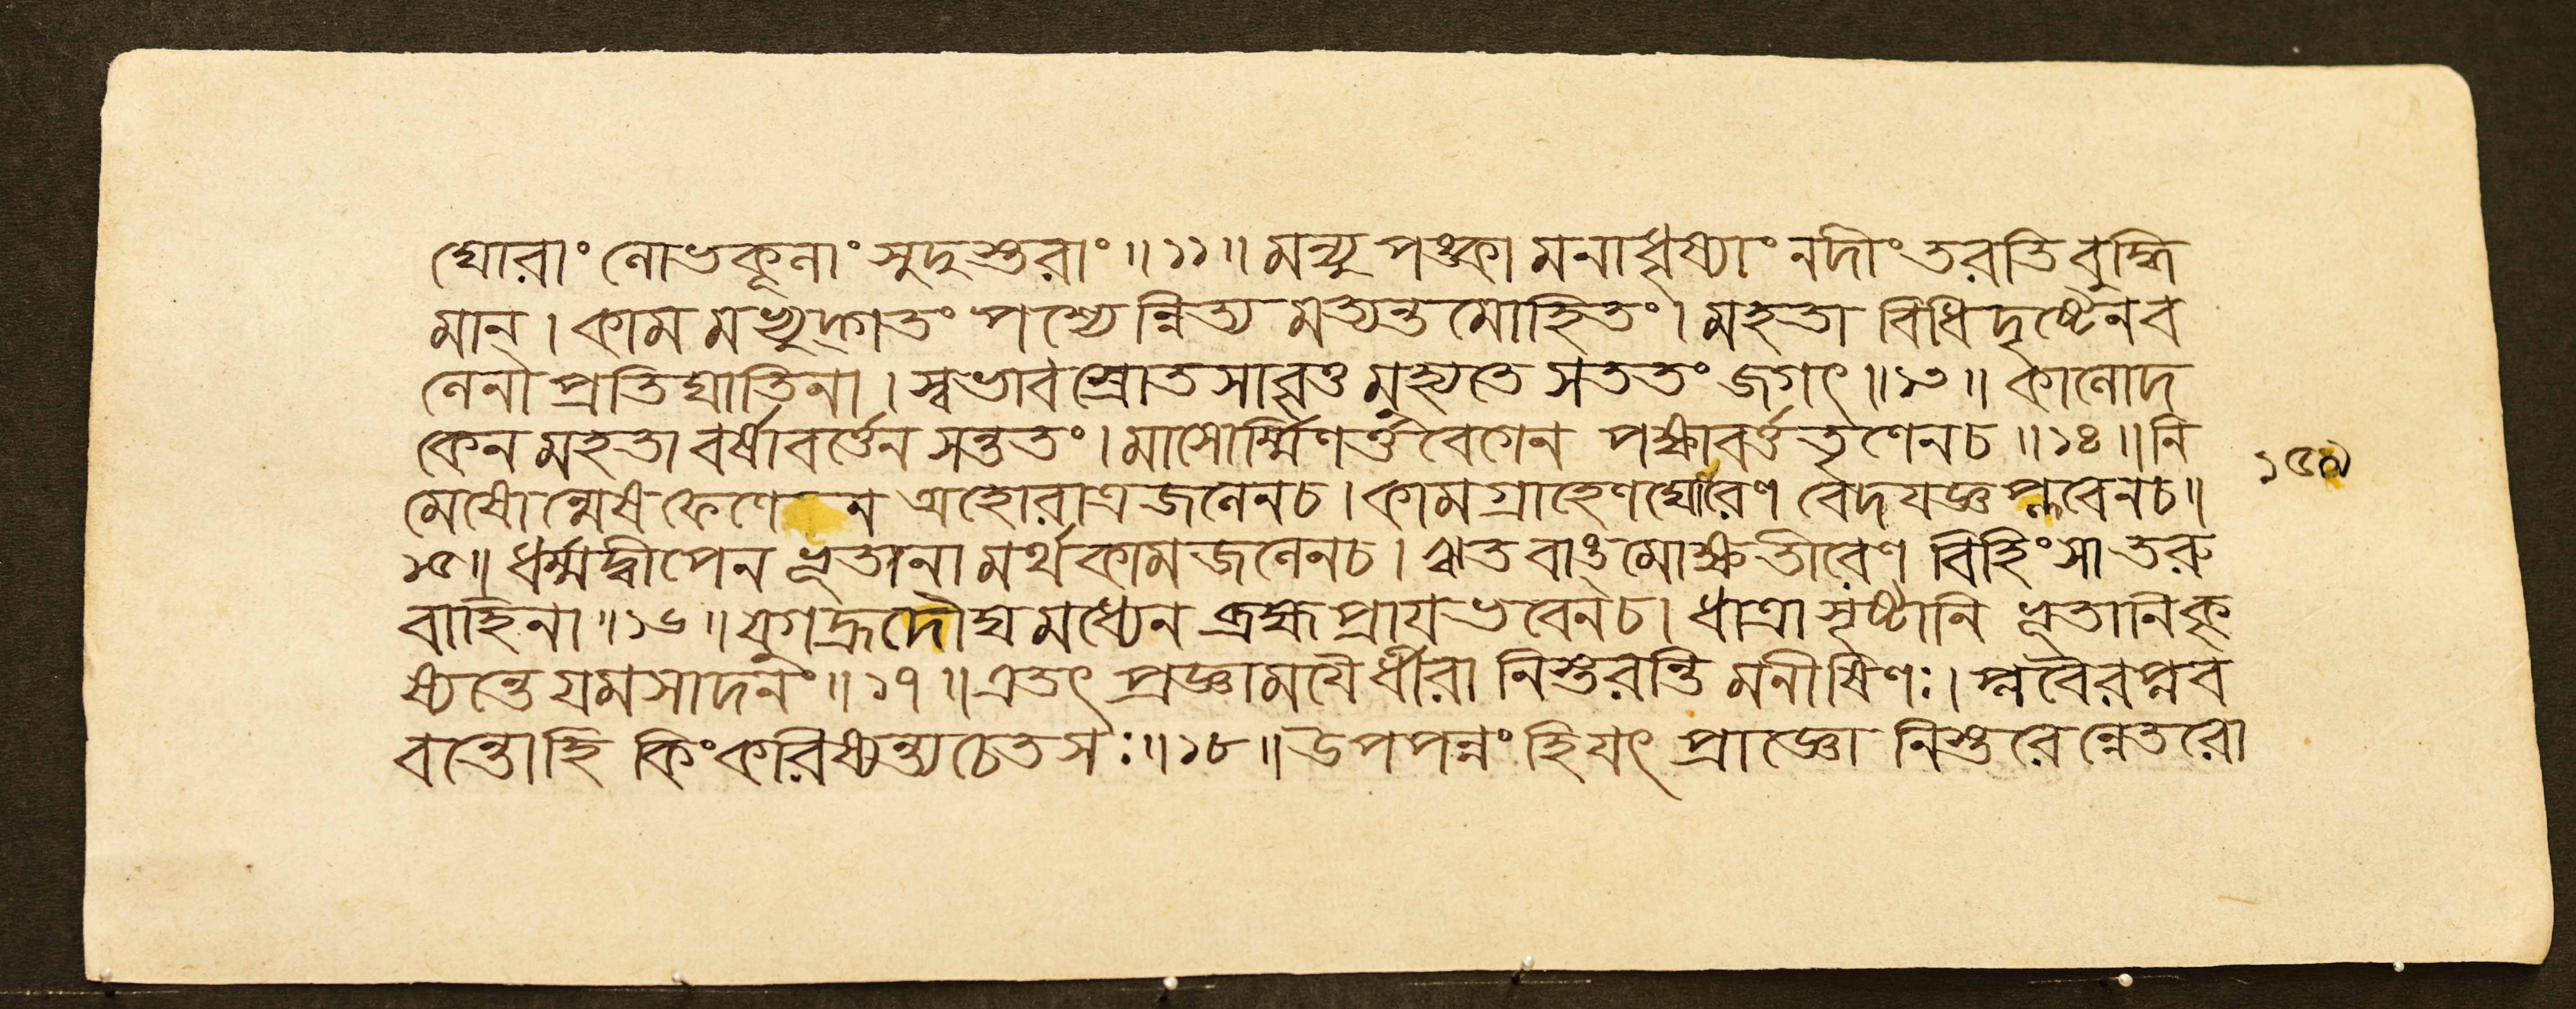 ঘোরাং লোভকূলাং সুদুস্তরাং॥১১॥মন্যুপঙ্কামনাধৃষ্যাং নদীংতরতিবুদ্ধি
মান্।কামমভ্যুদ্গতং পশ্যেন্নিত্যমত্যন্তমোহিতং।মহতা বিধিদৃষ্টেনব
লেনাপ্রতিঘাতিনা।স্বভাবস্রোতসাবৃত্তমুহ্যতে সততং জগৎ॥১৩॥কালোদ
কেন মহতা বর্ষাবর্ত্তেন সন্ততং।মাসোর্ম্মিণর্ত্তুবেগেন পক্ষাবর্ত্ততৃণেনচ॥১৪॥নি
মেষোন্মেষফেণেন অহোরাত্রজলেনচ।কামগ্রাহেণঘোরেণ বেদযজ্ঞপ্লবেনচ॥
১৫॥ধর্ম্মদ্বীপেন ভূতানামর্থকামজলেনচ।ঋতবাঙ্মোক্ষতীরেণ বিহিংসাতরু
বাহিনা॥১৬॥যুগহ্রদৌঘমধ্যেন ব্রহ্মপ্রাযভবেনচ।ধাত্রাসৃষ্টানি ভূতানিকৃ
ষ্যন্তে যমসাদনং॥১৭॥এতৎ প্রজ্ঞামযৈর্ধীরা নিস্তরন্তি মনীষিণঃ।প্লবৈরপ্লব
বন্তোহি কিংকরিষ্যন্ত্যচেতসঃ॥১৮॥উপপন্নং হিযৎ প্রাজ্ঞো নিস্তরেন্নেতরো